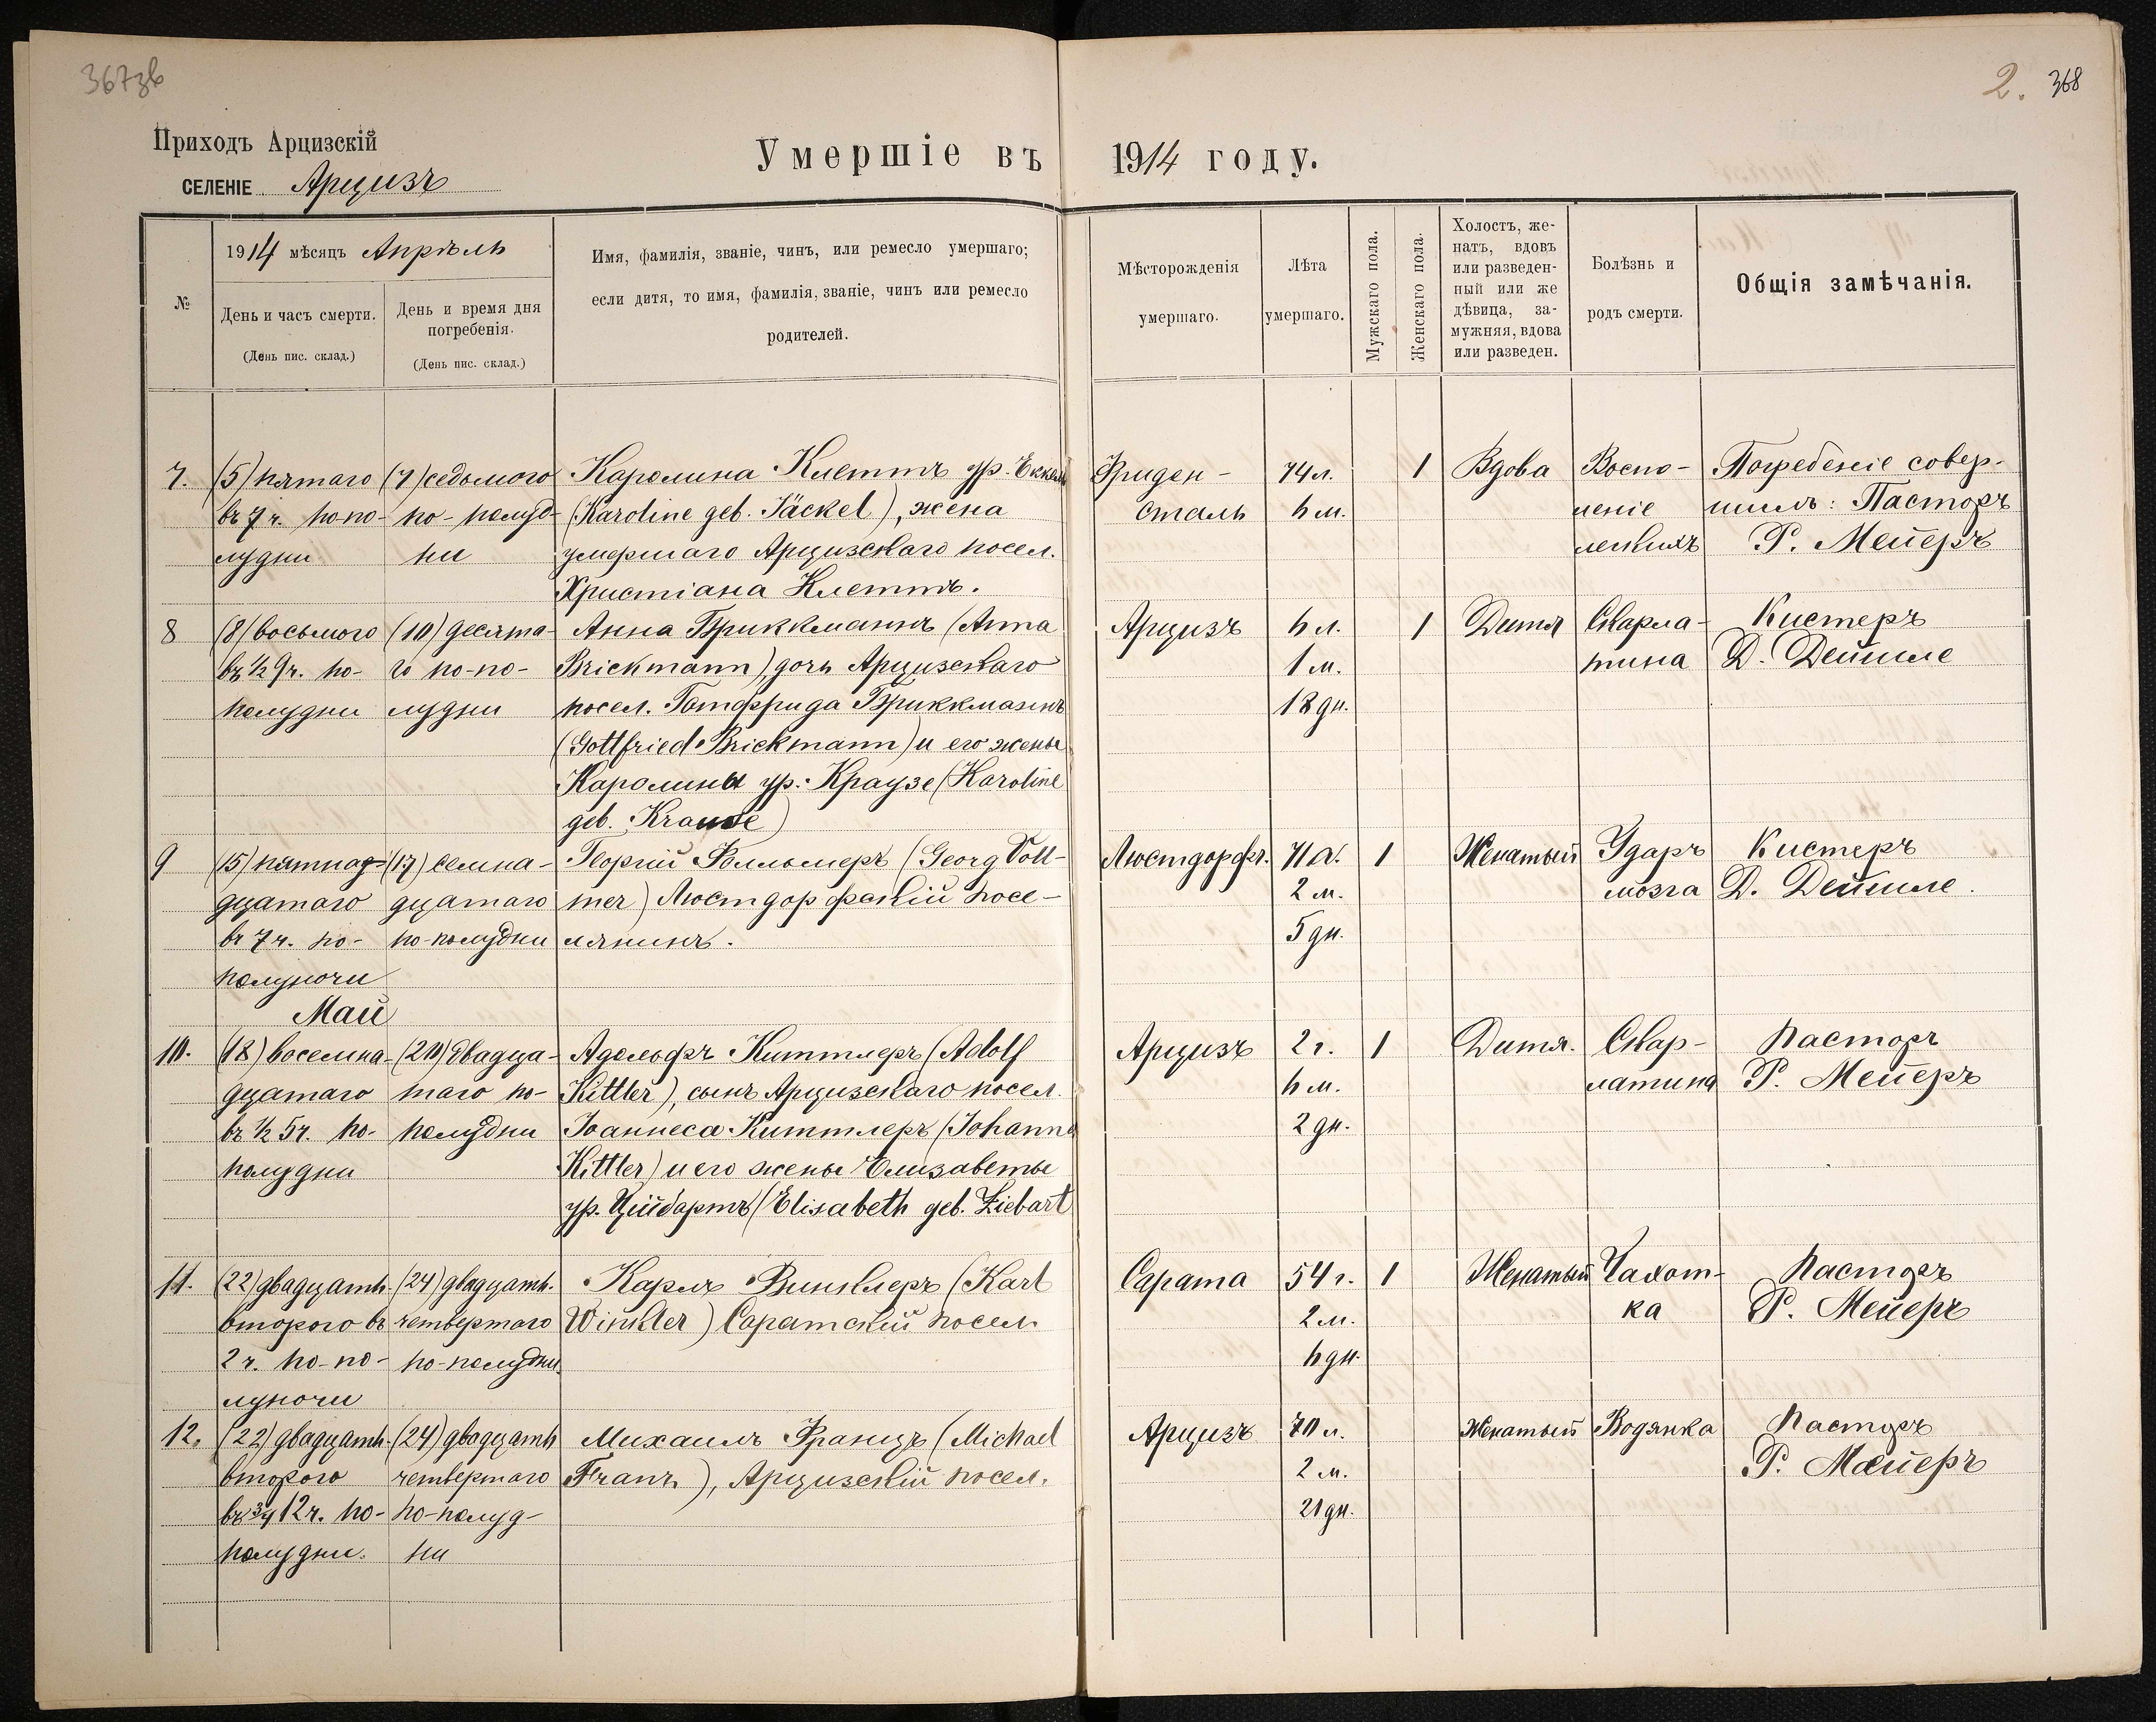 367зв
2. 368
Приходъ Арцизскій
СЕЛЕНІЕ Арцизъ
Умершіе въ 1914 году.
№
1914 мѣсяцъ Апрѣль
День и часъ смерти.
(День пис. склад.)
День и время дня
погребенія.
(День пис. склад.)
Имя, фамилія, званіе, чинъ, или ремесло умершаго;
если дитя, то имя, фамилія, званіе, чинъ или ремесло
родителей.
Мѣсторожденія
умершаго.
Лѣта
умершаго.
Мужскаго пола.
Женскаго пола.
Холостъ, же-
натъ, вдовъ
или разведен-
ный или же
дѣвица, за-
мужняя, вдова
или разведен.
Болѣзнь и
родъ смерти.
Общія замѣчанія.
7.
(5) пятаго
въ 7 ч. по-по-
лудни
(7) седьмого
по-полуд-
ни
Каролина Клеттъ ур. Еккель
(Karoline geb. Jäckel), жена
умершаго Арцизскаго посел.
Христіана Клеттъ.
Фриден-
сталь
74 л.
6 м.
1
Вдова
Воспа-
леніе
легкихъ
Погребеніе совер-
шилъ: Пасторъ
Р. Мейеръ
8
(8) восьмого
въ ½ 9 ч. по-
полудни
(10) десята-
го по-по-
лудни
Анна Бриккманнъ (Anna
Brickmann), дочь Арцизскаго
посел. Готфрида Бриккманнъ
(Gottfried Brickmann) и его жены
Каролины ур. Краузе (Karoline
geb. Krause)
Арцизъ
6 л.
1 м.
18 дн.
1
Дитя
Скарла-
тина
Кистеръ
Д. Дейшле
9
(15) пятнад-
цатаго
въ 7 ч. по-
полуночи
(17) семна-
дцатаго
по-полудни
Георгій Фолльмеръ (Georg Voll-
mer) Люстдорфскій посе-
лянинъ.
Люстдорфъ.
71 л.
2 м.
5 дн.
1
Женатый
Ударъ
мозга
Кистеръ
Д. Дейшле.
Май
10.
(18) восемна-
дцатаго
въ ½ 5 ч. по-
полудни
(20) двадца-
таго по-
полудни
Адольфъ Киттлеръ (Adolf
Kittler), сынъ Арцизскаго посел.
Іоаннеса Киттлеръ (Johannes
Kittler) и его жены Елизаветы
ур. Цибартъ (Elisabeth geb. Ziebart
Арцизъ
2 г.
6 м.
2 дн.
1
Дитя.
Скар-
латина
Пасторъ
Р. Мейеръ
11.
(22) двадцать-
второго въ
2 ч. по-по-
луночи
(24) двадцать-
четвертаго
по-полудни
Карлъ Винклеръ (Karl
Winkler) Саратскій посел.
Сарата
54 г.
2 м.
6 дн.
1
Женатый
Чахот-
ка
Пасторъ
Р. Мейеръ
12.
(22) двадцать-
второго
въ ¾ 12 ч. по-
полудни.
(24) двадцать
четвертаго
по-полуд-
ни
Михаилъ Францъ (Michael
Franz), Арцизскій посел.
Арцизъ
70 л.
2 м.
21 дн.
Женатый
Водянка
Пасторъ
Р. Мейеръ